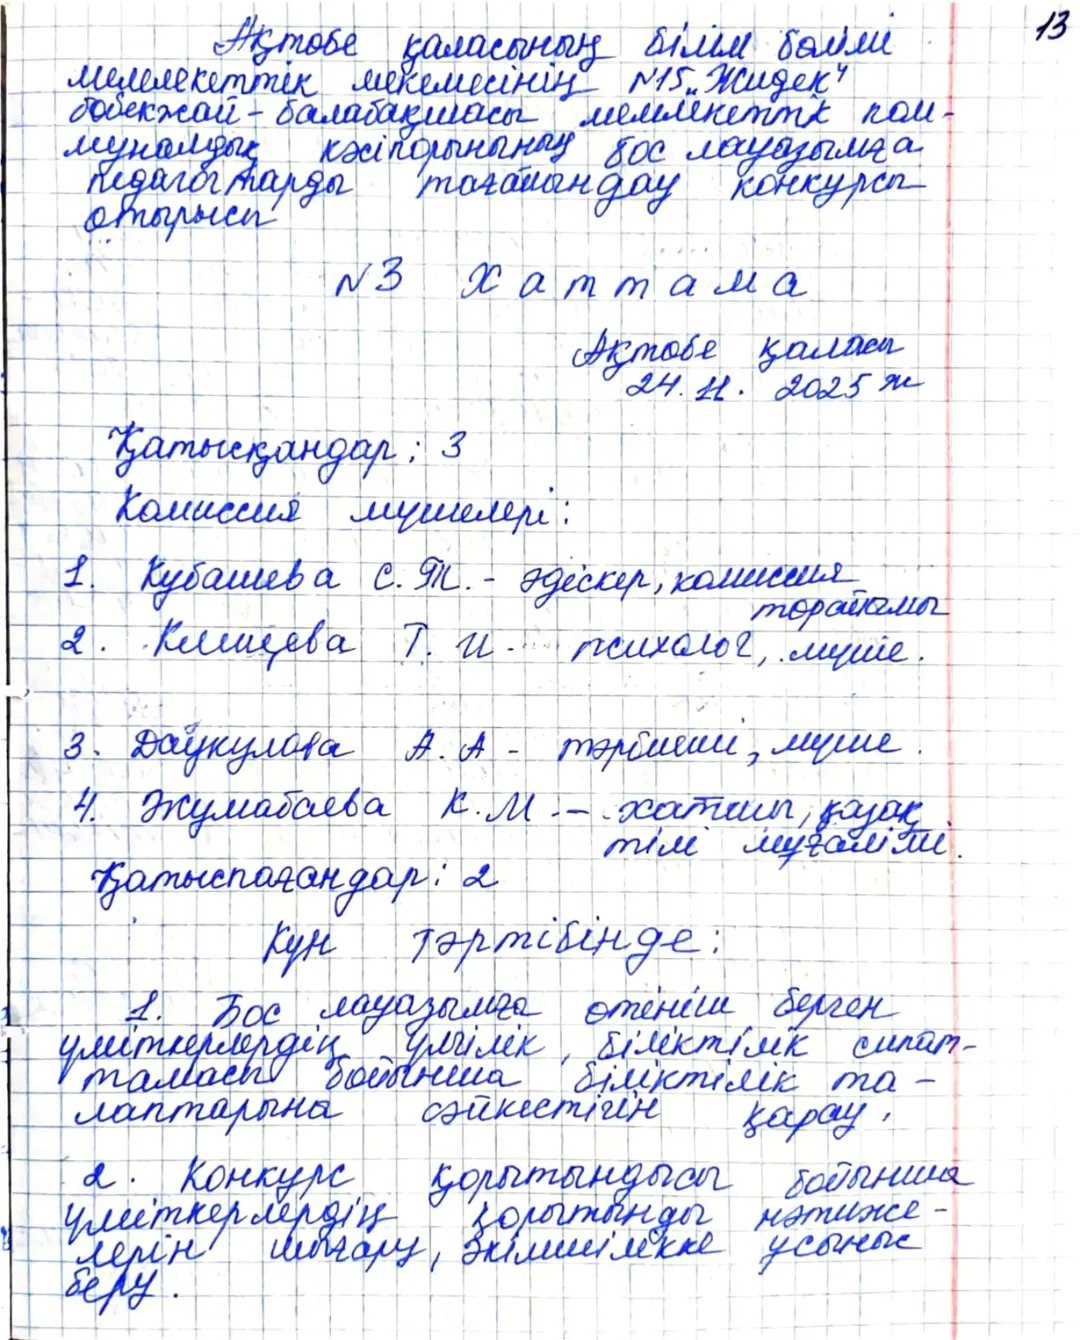 13
Ақтөбе қаласының білім бөлімі
мемлекеттік мекемесінің №15 „Жидек"
бөбекжай-балабақшасы мемлекеттік ком-
муналдық кәсіпорынының бос лауазымға
педагогтарды тағайындау конкурсы
отырысы
№3 Хаттама
Ақтөбе қаласы
24.11.2025 ж
Қатысқандар: 3
Комиссия мүшелері:
1. Кубашева С.Т. - әдіскер, комиссия
төрайымы
2. Т.И - психолог, мүше.
3. Даукулова А.А - тәрбиеші, мүше.
4. Жумабаева К.М. - хатшы, қазақ
тілі мұғалімі.
Қатыспағандар: 2
Күн тәртібінде:
1. Бос лауазымға өтініш берген
үміткерлердің үлгілік, біліктілік сипат-
тамасы бойынша біліктілік та-
лаптарына сәйкестігін қарау.
2. Конкурс қорытындысы бойынша
үміткерлердің қорытынды нәтиже-
лерін шығару, әкімшілікке ұсыныс
беру.